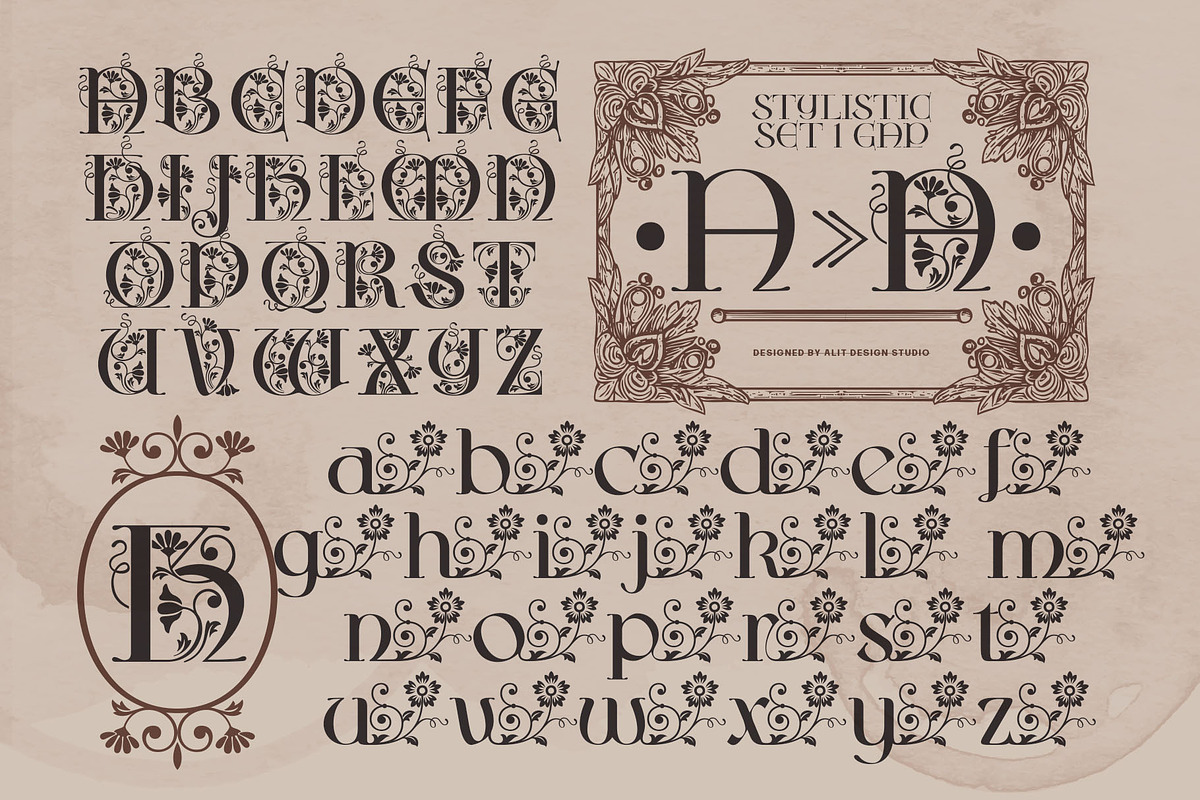 A B C D E F G
H I J K L M N
O P Q R S T
U V W X Y Z
STYLISTIC
SET 1 GAP
• A » A •
DESIGNED BY ALIT DESIGN STUDIO
K
a b c d e f
g h i j k l m
n o p r s t
u v w x y z